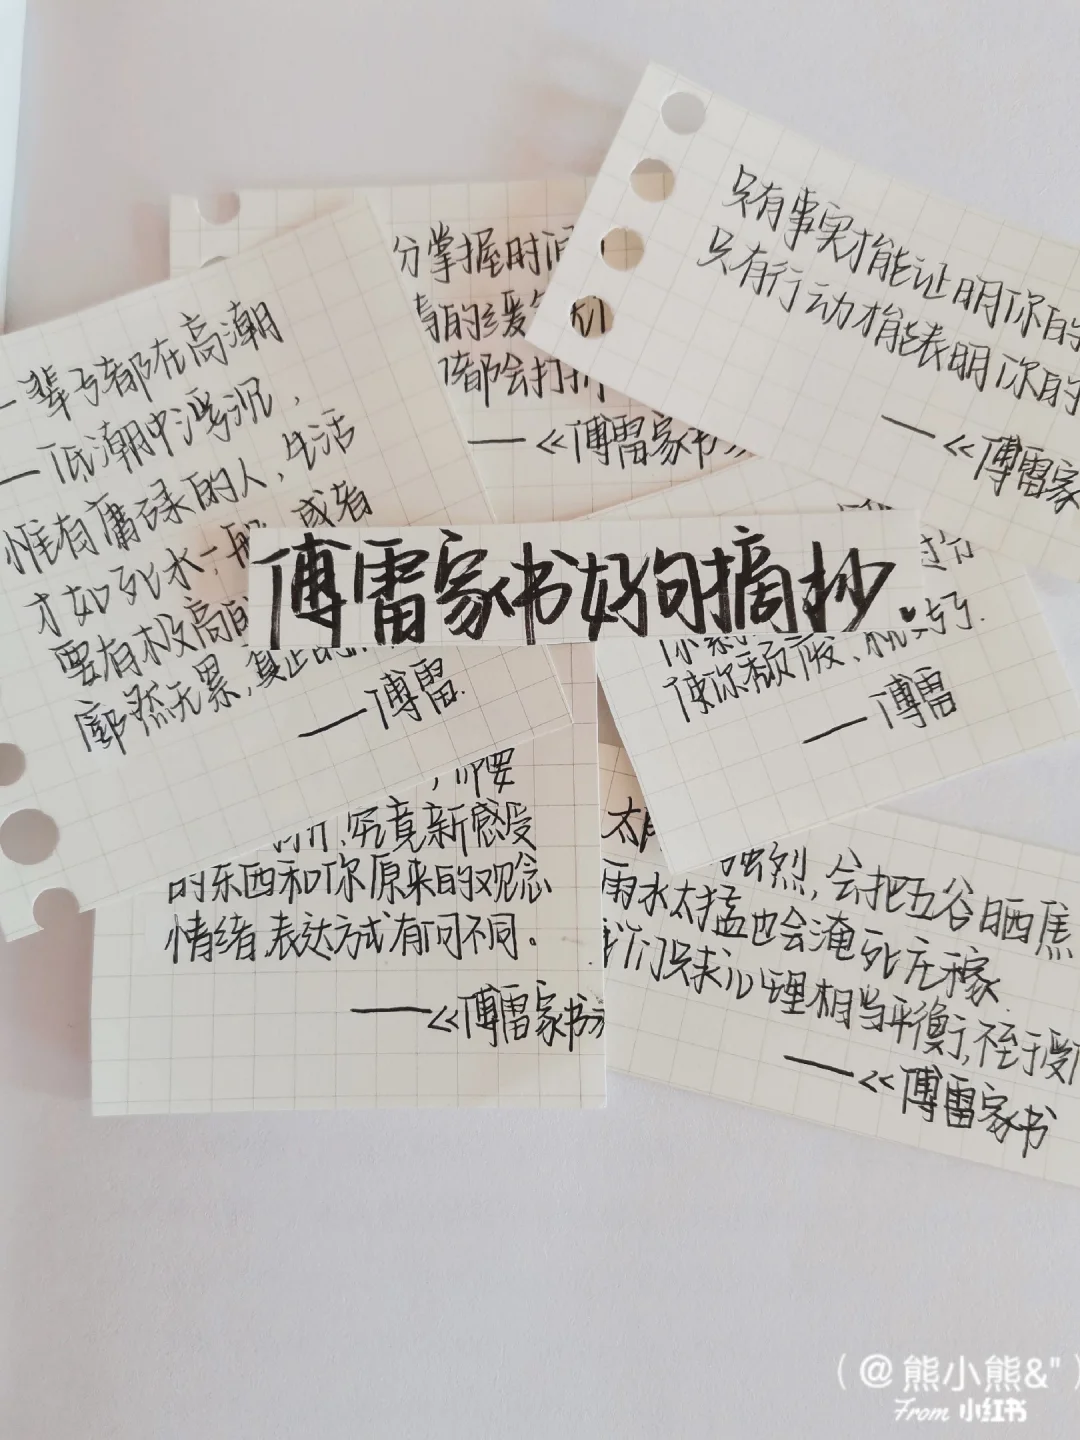 分掌握时间
的缓
都会打折
——《傅雷家书
只有事实才能证明你的
只有行动才能表明你的
——《傅雷家
一辈子都在高潮
—低潮中浮沉，
惟有庸碌的人，生活
才如死水一般，或者
要有极高的
廓然无累，真正的
——傅雷.
傅雷家书好句摘抄.
使你颓废、
——傅雷
，即要
究竟新感受
的东西和你原来的观念
情绪、表达方式有何不同。
——《傅雷家书》
太
强烈，会把五谷晒焦
雨水太猛也会淹死庄稼
我们只求心理相当平衡，不至于受
——《傅雷家书
(@熊小熊&")
From 小红书